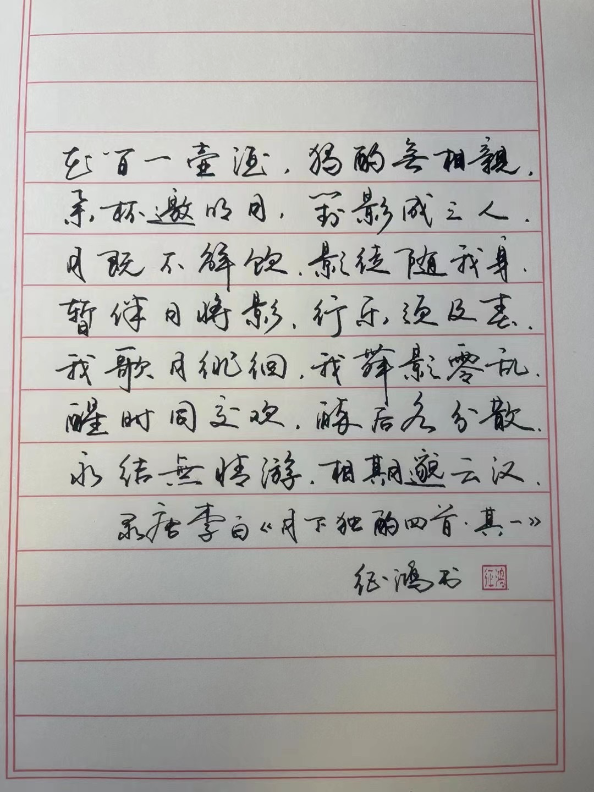 花间一壶酒，獨酌無相親。
举杯邀明月，對影成三人。
月既不解饮，影徒随我身。
暂伴月将影，行乐须及春。
我歌月徘徊，我舞影零乱。
醒时同交欢，醉后各分散。
永结無情游，相期邈云汉。
录唐李白《月下独酌四首·其一》
征鸿书 征鸿